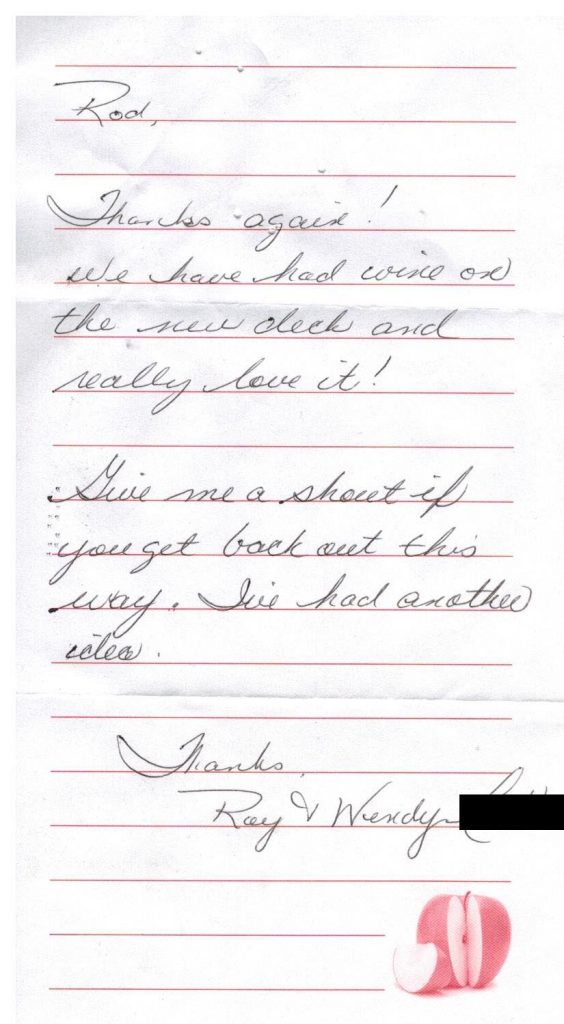 Rod,
Thanks again!
We have had wine on
the new deck and
really love it!
Give me a shout if
you get back out this
way. I've had another
idea.
Thanks,
Ray & Wendy